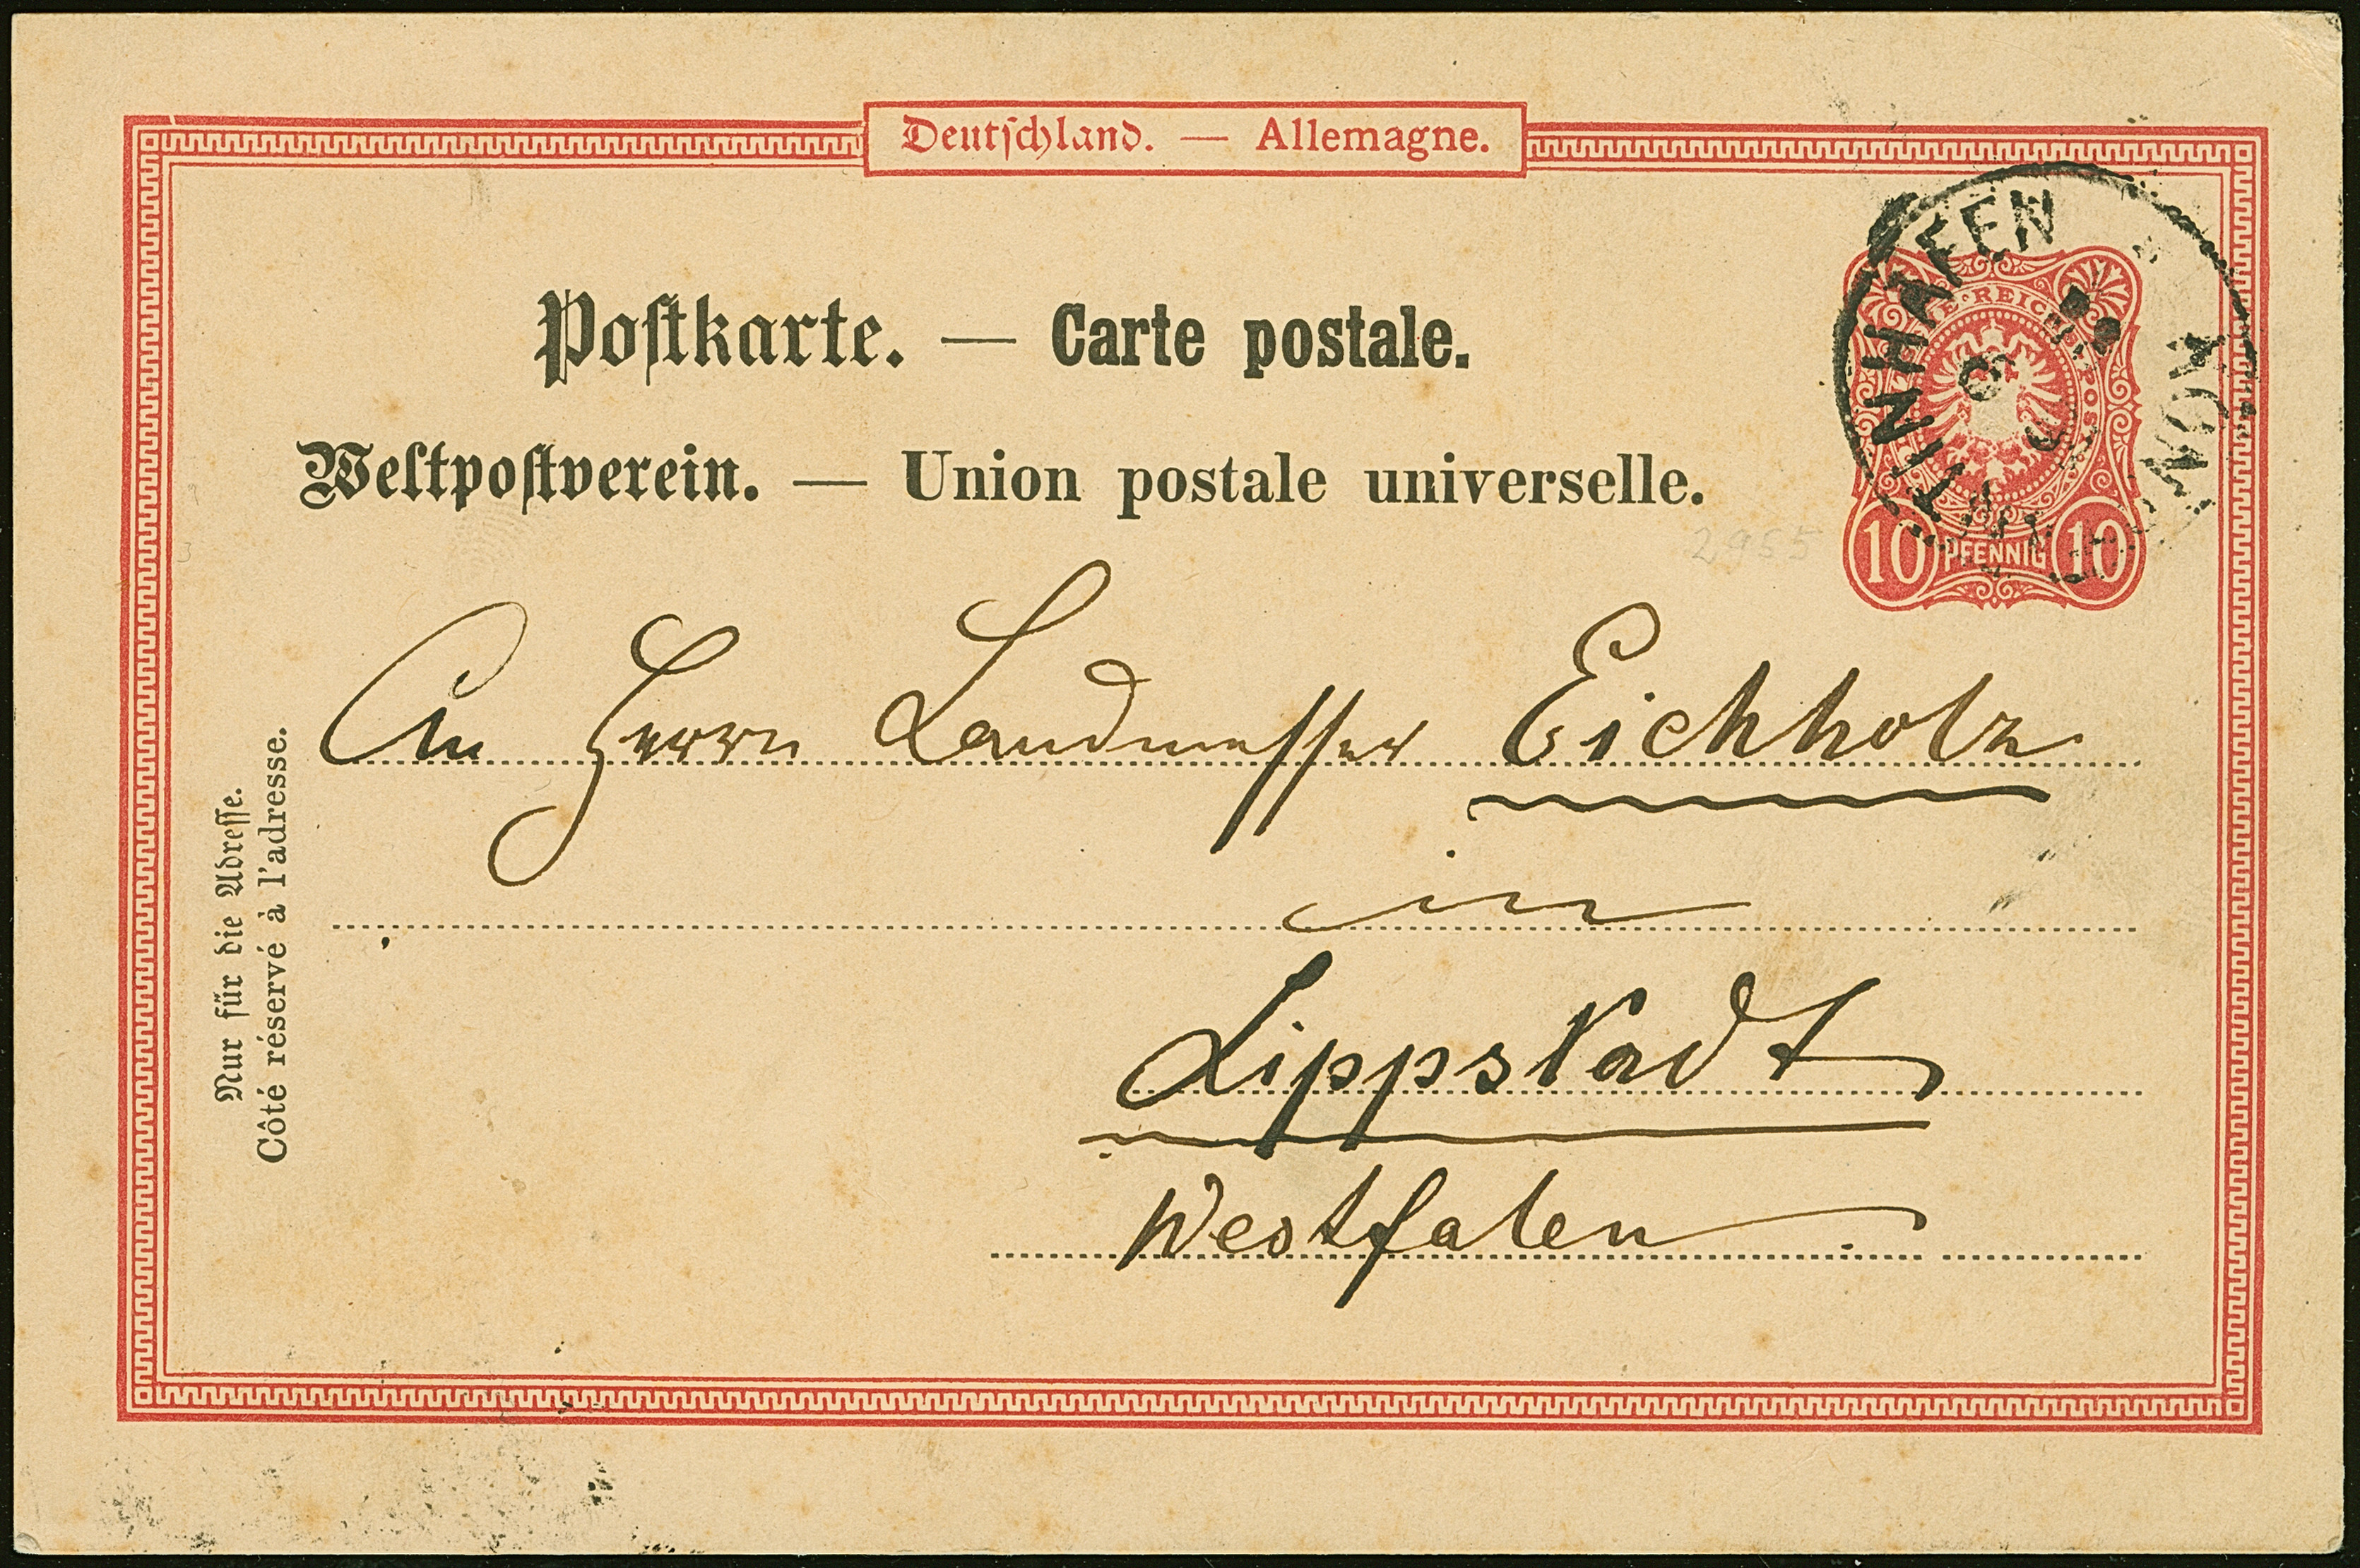 Deutschland. — Allemagne.
Postkarte. — Carte postale.
Weltpostverein. — Union postale universelle.
REICHSPOST
10 PFENNIG 10
TINHAFEN
2955
An Herrn Landmesser Eichholz
in
Lippstadt
Westfalen
Nur für die Adresse.
Côté réservé à l'adresse.